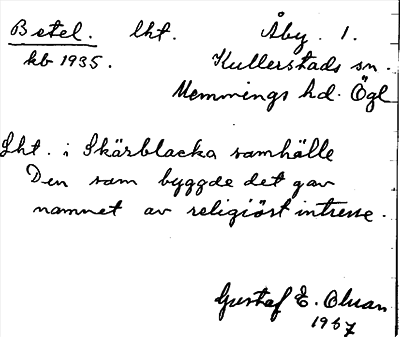 Betel. lht. Åby. 1.
kb 1935. Kullerstads sn.
Memmings hd. Ögl
Lht. i Skärblacka samhälle
Den som byggde det gav
namnet av religiöst intresse.
Gustaf E. Olsson
1967